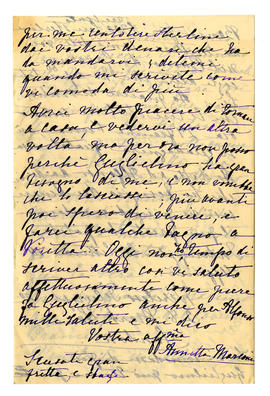 per me ventitre sterline
dai vostri denari che ho
da mandarvi, ditemi
quando mi scrivete come
vi comoda di più.
Avrei molto piacere di tornare
a casa, e vedervi un altra
volta ma per ora non posso
perchè Guglielmo ha gran
bisogno di me, e non vorrebbe
che lo lasciassi; più avanti
poi spero di venire, e
farei qualche bagno a
Oggi non ho tempo di
scriver altro così vi saluto
affettuosamente come pure
fa Guglielmo anche per Alfonso
mille saluti e mi dico
Vostra affma
Annetta Marconi
Scusate gran
fretta e